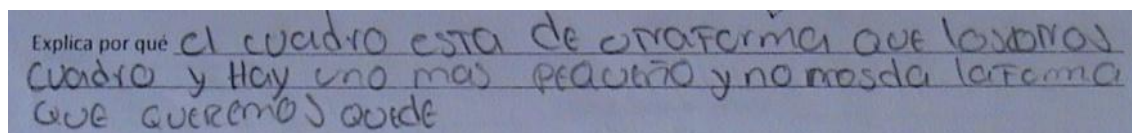 Explica por qué el cuadro esta de otra forma que los otros
cuadro y Hay uno mas pequeño y no mos da la forma
que queremos quede